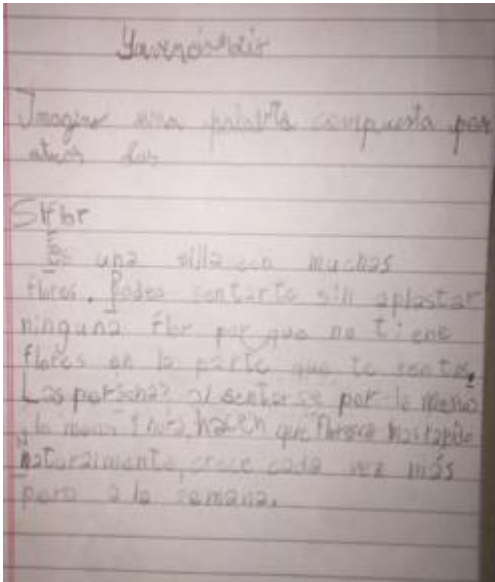 Imagino una palabra compuesta por
otras dos
Siflor
Es una silla con muchas
flores. Podes sentarte sin aplastar
ninguna flor por que no tiene
flores en la parte que te sentas,
Las personas al sentarse por lo menos
hacen que floresca mas rapido
naturalmente, crece cada vez más
pero a la semana.